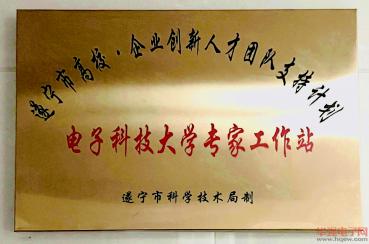 遂宁市高校·企业创新人才团队支持计划
电子科技大学专家工作站
遂宁市科学技术局制
华强电子网
www.hqew.com